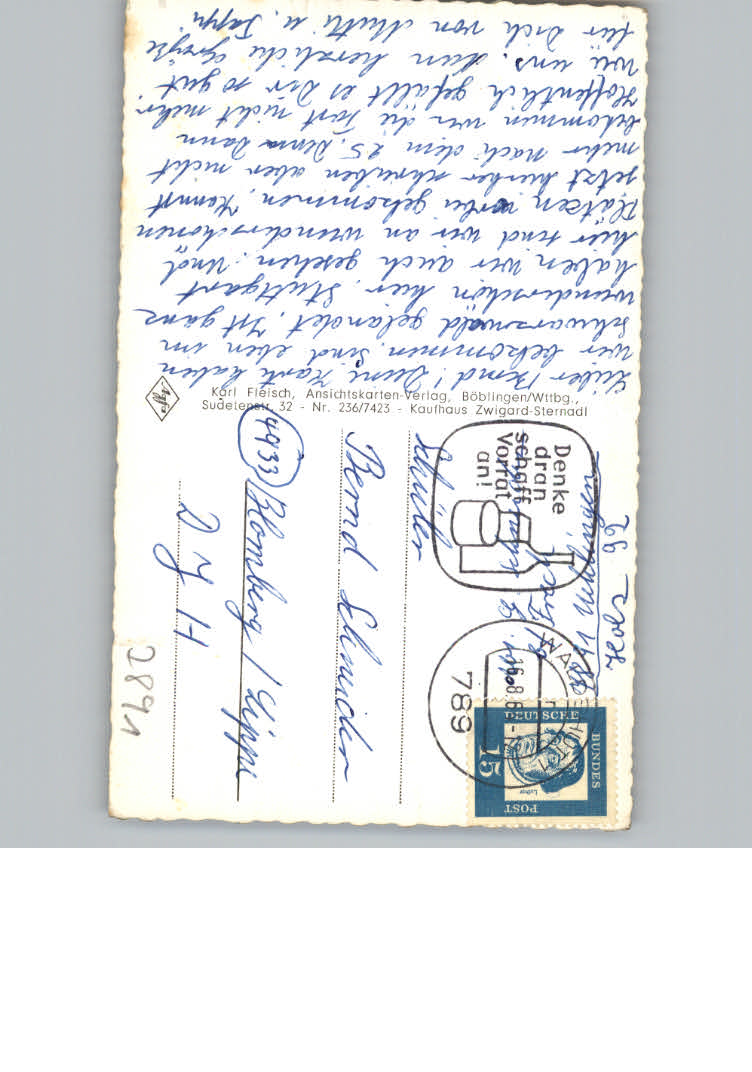 Lieber Bernd! Deine Karte haben
wir bekommen. Sind eben im
Schwarzwald gelandet. Ist ganz
wunderschön hier. Stuttgart
haben wir auch gesehen. Und
hier sind wir an wunderschönen
Plätzen vorbei gekommen. Kannst
jetzt hierher schreiben aber nicht
mehr nach dem 25. Denn dann
bekommen wir die Post nicht mehr.
Hoffentlich gefällt es Dir so gut
wie uns. Nun herzliche Grüße
für Dich von Mutti u. Pappi
Karl Fleisch, Ansichtskarten-Verlag, Böblingen/Wttbg.,
Sudetenstr. 32 - Nr. 236/7423 - Kaufhaus Zwigard-Sternadl
Agfa
Denke
dran
schaff
Vorrat
an!
789
16.8.6
DEUTSCHE
BUNDES
POST
15
Luther
Schüler
Bernd Schnieder
4933 Blomberg / Lippe
DJH
2891